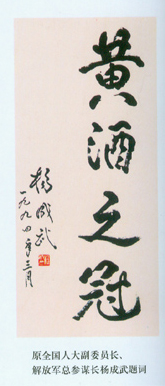 黄酒之冠
杨成武
一九九四年三月
原全国人大副委员长、
解放军总参谋长杨成武题词